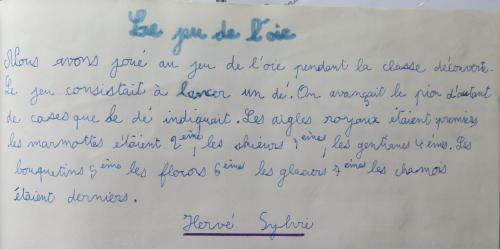 Le jeu de l'oie
Nous avons joué au jeu de l'oie pendant la classe découverte.
Le jeu consistait à lancer un dé. On avançait le pion d'autant
de cases que le dé indiquait. Les aigles royaux étaient premiers
les marmottes étaient 2ème, les skieurs 3ème, les gentianes 4ème. Les
bouquetins 5ème les flocons 6ème les glaciers 7ème les chamois
étaient derniers.
Hervé Sylvie